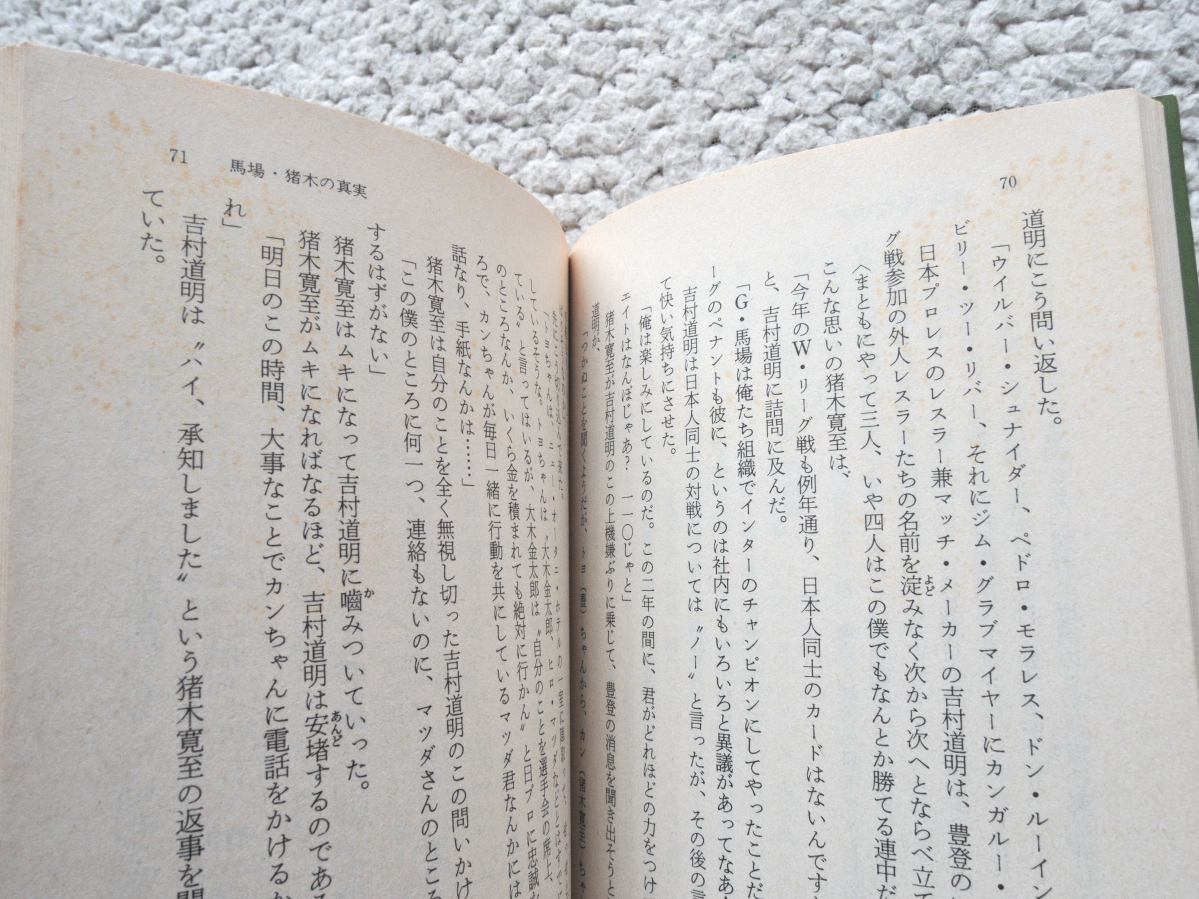 70
道明にこう問い返した。
「ウイルバー・シュナイダー、ペドロ・モラレス、ドン・ルーイン
ビリー・ツー・リバー、それにジム・グラブマイヤーにカンガルー・
日本プロレスのレスラー兼マッチ・メーカーの吉村道明は、豊登の
グ戦参加の外人レスラーたちの名前を淀みなく次から次へとならべ立て
〈まともにやって三人、いや四人はこの僕でもなんとか勝てる連中だ
こんな思いの猪木寛至は、
「今年のW・リーグ戦も例年通り、日本人同士のカードはないんですか
と、吉村道明に詰問に及んだ。
「G・馬場は俺たち組織でインターのチャンピオンにしてやったことだ
ーグのペナントも彼に、というのは社内にもいろいろと異議があってなあ
吉村道明は日本人同士の対戦については〝ノー〟と言ったが、その後の言
て快い気持ちにさせた。
「俺は楽しみにしているのだ。この二年の間に、君がどれほどの力をつけ
エイトはなんぼじゃあ? 一一〇じゃと」
猪木寛至が吉村道明のこの上機嫌ぶりに乗じて、豊登の消息を聞き出そうと
道明が、
「つかぬことを聞くようだが、トヨ(豊)ちゃんから、カン(猪木寛至)ちゃ
71 馬場・猪木の真実
しているそうな。トヨちゃんは〝大木金太郎は〝自分のことを選手会の席上、
ている〟と言ってはいるが、大木金太郎、
のところなんか、いくら金を積まれても絶対に行かん〟と日プロに忠誠な
ろで、カンちゃんが毎日一緒に行動を共にしているマツダ君なんかには
話なり、手紙なんかは……」
猪木寛至は自分のことを全く無視し切った吉村道明のこの問いかけ
「この僕のところに何一つ、連絡もないのに、マツダさんのところ
するはずがない」
猪木寛至はムキになって吉村道明に嚙みついていった。
猪木寛至がムキになればなるほど、吉村道明は安堵するのである
「明日のこの時間、大事なことでカンちゃんに電話をかけるか
れ」
吉村道明は〝ハイ、承知しました〟という猪木寛至の返事を聞
ていた。